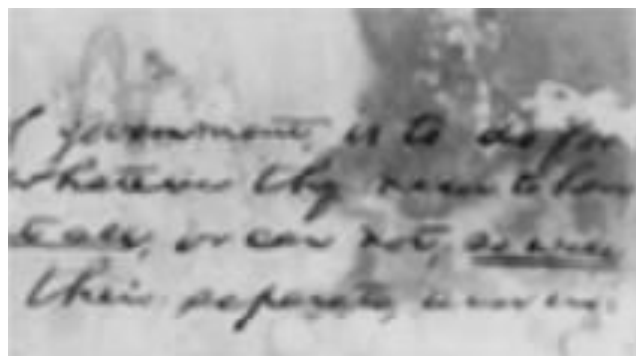 government, is to do for
whatever they need to have
at all, or can not, so well
their separate, and in